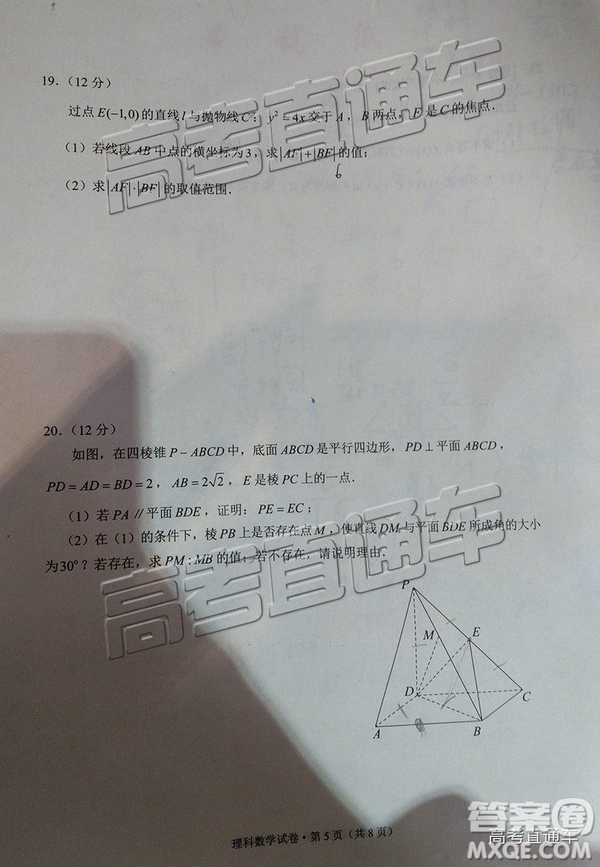 19.（12 分）
过点 E(−1,0) 的直线 l 与抛物线 C：y² = 4x 交于 A，B 两点，F 是 C 的焦点.
（1）若线段 AB 中点的横坐标为 3，求 |AF| + |BF| 的值；
（2）求 |AF|·|BF| 的取值范围.
高考直通车
20.（12 分）
如图，在四棱锥 P − ABCD 中，底面 ABCD 是平行四边形，PD ⊥ 平面 ABCD，
PD = AD = BD = 2，AB = 2√2，E 是棱 PC 上的一点.
（1）若 PA // 平面 BDE，证明：PE = EC；
（2）在（1）的条件下，棱 PB 上是否存在点 M，使直线 DM 与平面 BDE 所成角的大小
为 30°？若存在，求 PM : MB 的值；若不存在，请说明理由.
高考直通车
P
M
E
D
C
A
B
理科数学试卷·第 5 页（共 8 页）
答案圈
高考直通车
MXQE.COM